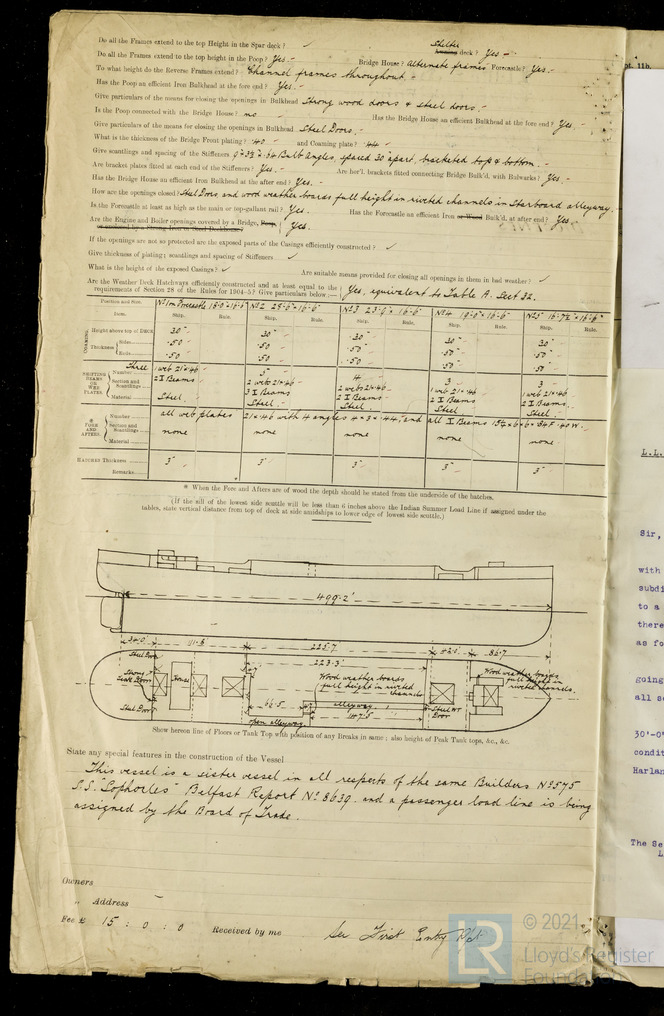 Do all the Frames extend to the top Height in the Spar deck? ✓ Shelter Awning deck? Yes
Do all the Frames extend to the top height in the Poop? Yes.- Bridge House? Alternate frames Forecastle? Yes.-
To what height do the Reverse Frames extend? Channel frames throughout.-
Has the Poop an efficient Iron Bulkhead at the fore end? Yes.-
Give particulars of the means for closing the openings in Bulkhead Strong wood doors & steel doors.-
Is the Poop connected with the Bridge House? no Has the Bridge House an efficient Bulkhead at the fore end? Yes.-
Give particulars of the means for closing the openings in Bulkhead Steel Doors.-
What is the thickness of the Bridge Front plating? .40 and Coaming plate? .44
Give scantlings and spacing of the Stiffeners 9"x 3½"x .64 Bulb Angles, spaced 30" apart, bracketed top & bottom.-
Are bracket plates fitted at each end of the Stiffeners? Yes.- Are hor'l. brackets fitted connecting Bridge Bulk'd. with Bulwarks? Yes.-
Has the Bridge House an efficient Iron Bulkhead at the after end? Yes.-
How are the openings closed? Steel Doors and wood weather boards full height in riveted channels in Starboard alleyway.
Is the Forecastle at least as high as the main or top-gallant rail? Yes. Has the Forecastle an efficient Iron or Wood Bulk'd. at after end? Yes.
Are the Engine and Boiler openings covered by a Bridge, Poop,
or enclosed by a Strong Iron or Steel Deckhouse? Yes.
If the openings are not so protected are the exposed parts of the Casings efficiently constructed? ✓
Give thickness of plating; scantlings and spacing of Stiffeners ✓
What is the height of the exposed Casings? ✓ Are suitable means provided for closing all openings in them in bad weather? ✓
Are the Weather Deck Hatchways efficiently constructed and at least equal to the
requirements of Section 28 of the Rules for 1904-5? Give particulars below:— Yes, equivalent to Table A. Sect 32.
Position and Size.
Item. Ship. Rule. Ship. Rule. Ship. Rule. Ship. Rule. Ship. Rule.
COAMING Height above top of DECK 30" 30" 30" 30" 30"
Thickness Sides .50 .50 .50 .50 .50
Ends .50 .50 .50 .50 .50
SHIFTING BEAMS OR WEB PLATES
Number
Section and Scantlings
Material Steel Steel Steel Steel Steel
* FORE AND AFTERS
Number all web plates 21 x .46 with 4 angles 4 x 3 x .44, and all I Beams
Section and Scantlings none none none none none
Material
HATCHES Thickness 3" 3" 3" 3" 3"
Remarks
* When the Fore and Afters are of wood the depth should be stated from the underside of the hatches.
(If the sill of the lowest side scuttle will be less than 6 inches above the Indian Summer Load Line if assigned under the
tables, state vertical distance from top of deck at side amidships to lower edge of lowest side scuttle.)
499.2'
34.0 225.7 42.0 86.7
223.3'
Steel Door
House
Wood weather boards full height in riveted channels
Wood weather boards full height in riveted channels.
66.5
alleyway
147.5
Steel Door
open alleyway
Steel WT Door
Show hereon line of Floors or Tank Top with position of any Breaks in same; also height of Peak Tank tops, &c., &c.
State any special features in the construction of the Vessel
This vessel is a sister vessel in all respects of the same Builders No 575
S.S. "Sophocles" Belfast Report No 8639. and a passenger load line is being
assigned by the Board of Trade.
Owners
" Address
Fee £ 15 : 0 : 0 Received by me See First Entry Rpt
LR © 2021
Lloyd's Register
Foundation
pt. 11b.
L.L.
Sir,
with
subdi
to a
there
as fo
going
all s
30'-0"
condit
Harlan
The Se
L